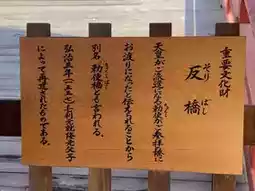 重要文化財
そり はし
反橋
天皇がご派遣になる勅使がご奉拝の時に
お渡りになったと伝えられることから
別名 勅使橋とも言われる。
弘治五年(一五五七)
によって再造されたものである。